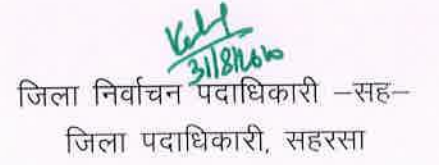 31/8/2020
जिला निर्वाचन पदाधिकारी –सह–
जिला पदाधिकारी, सहरसा